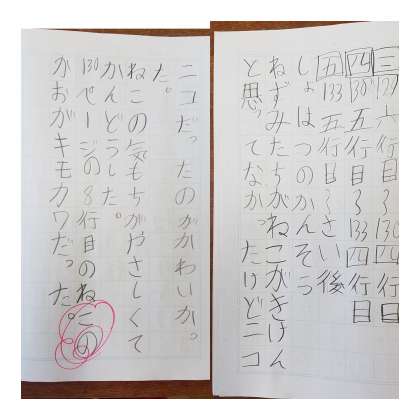 三 127 六行目〜130 四行目
四 130 五行目〜133 四行目
五 133 五行目〜さい後
しょはつのかんそう
ねずみたちがねこがきけん
と思ってなかったけどニコ
ニコだったのがかわいかっ
た。
ねこの気もちがやさしくて
かんどうした。
130ページの8行目のねこの
かおがキモカワだった。